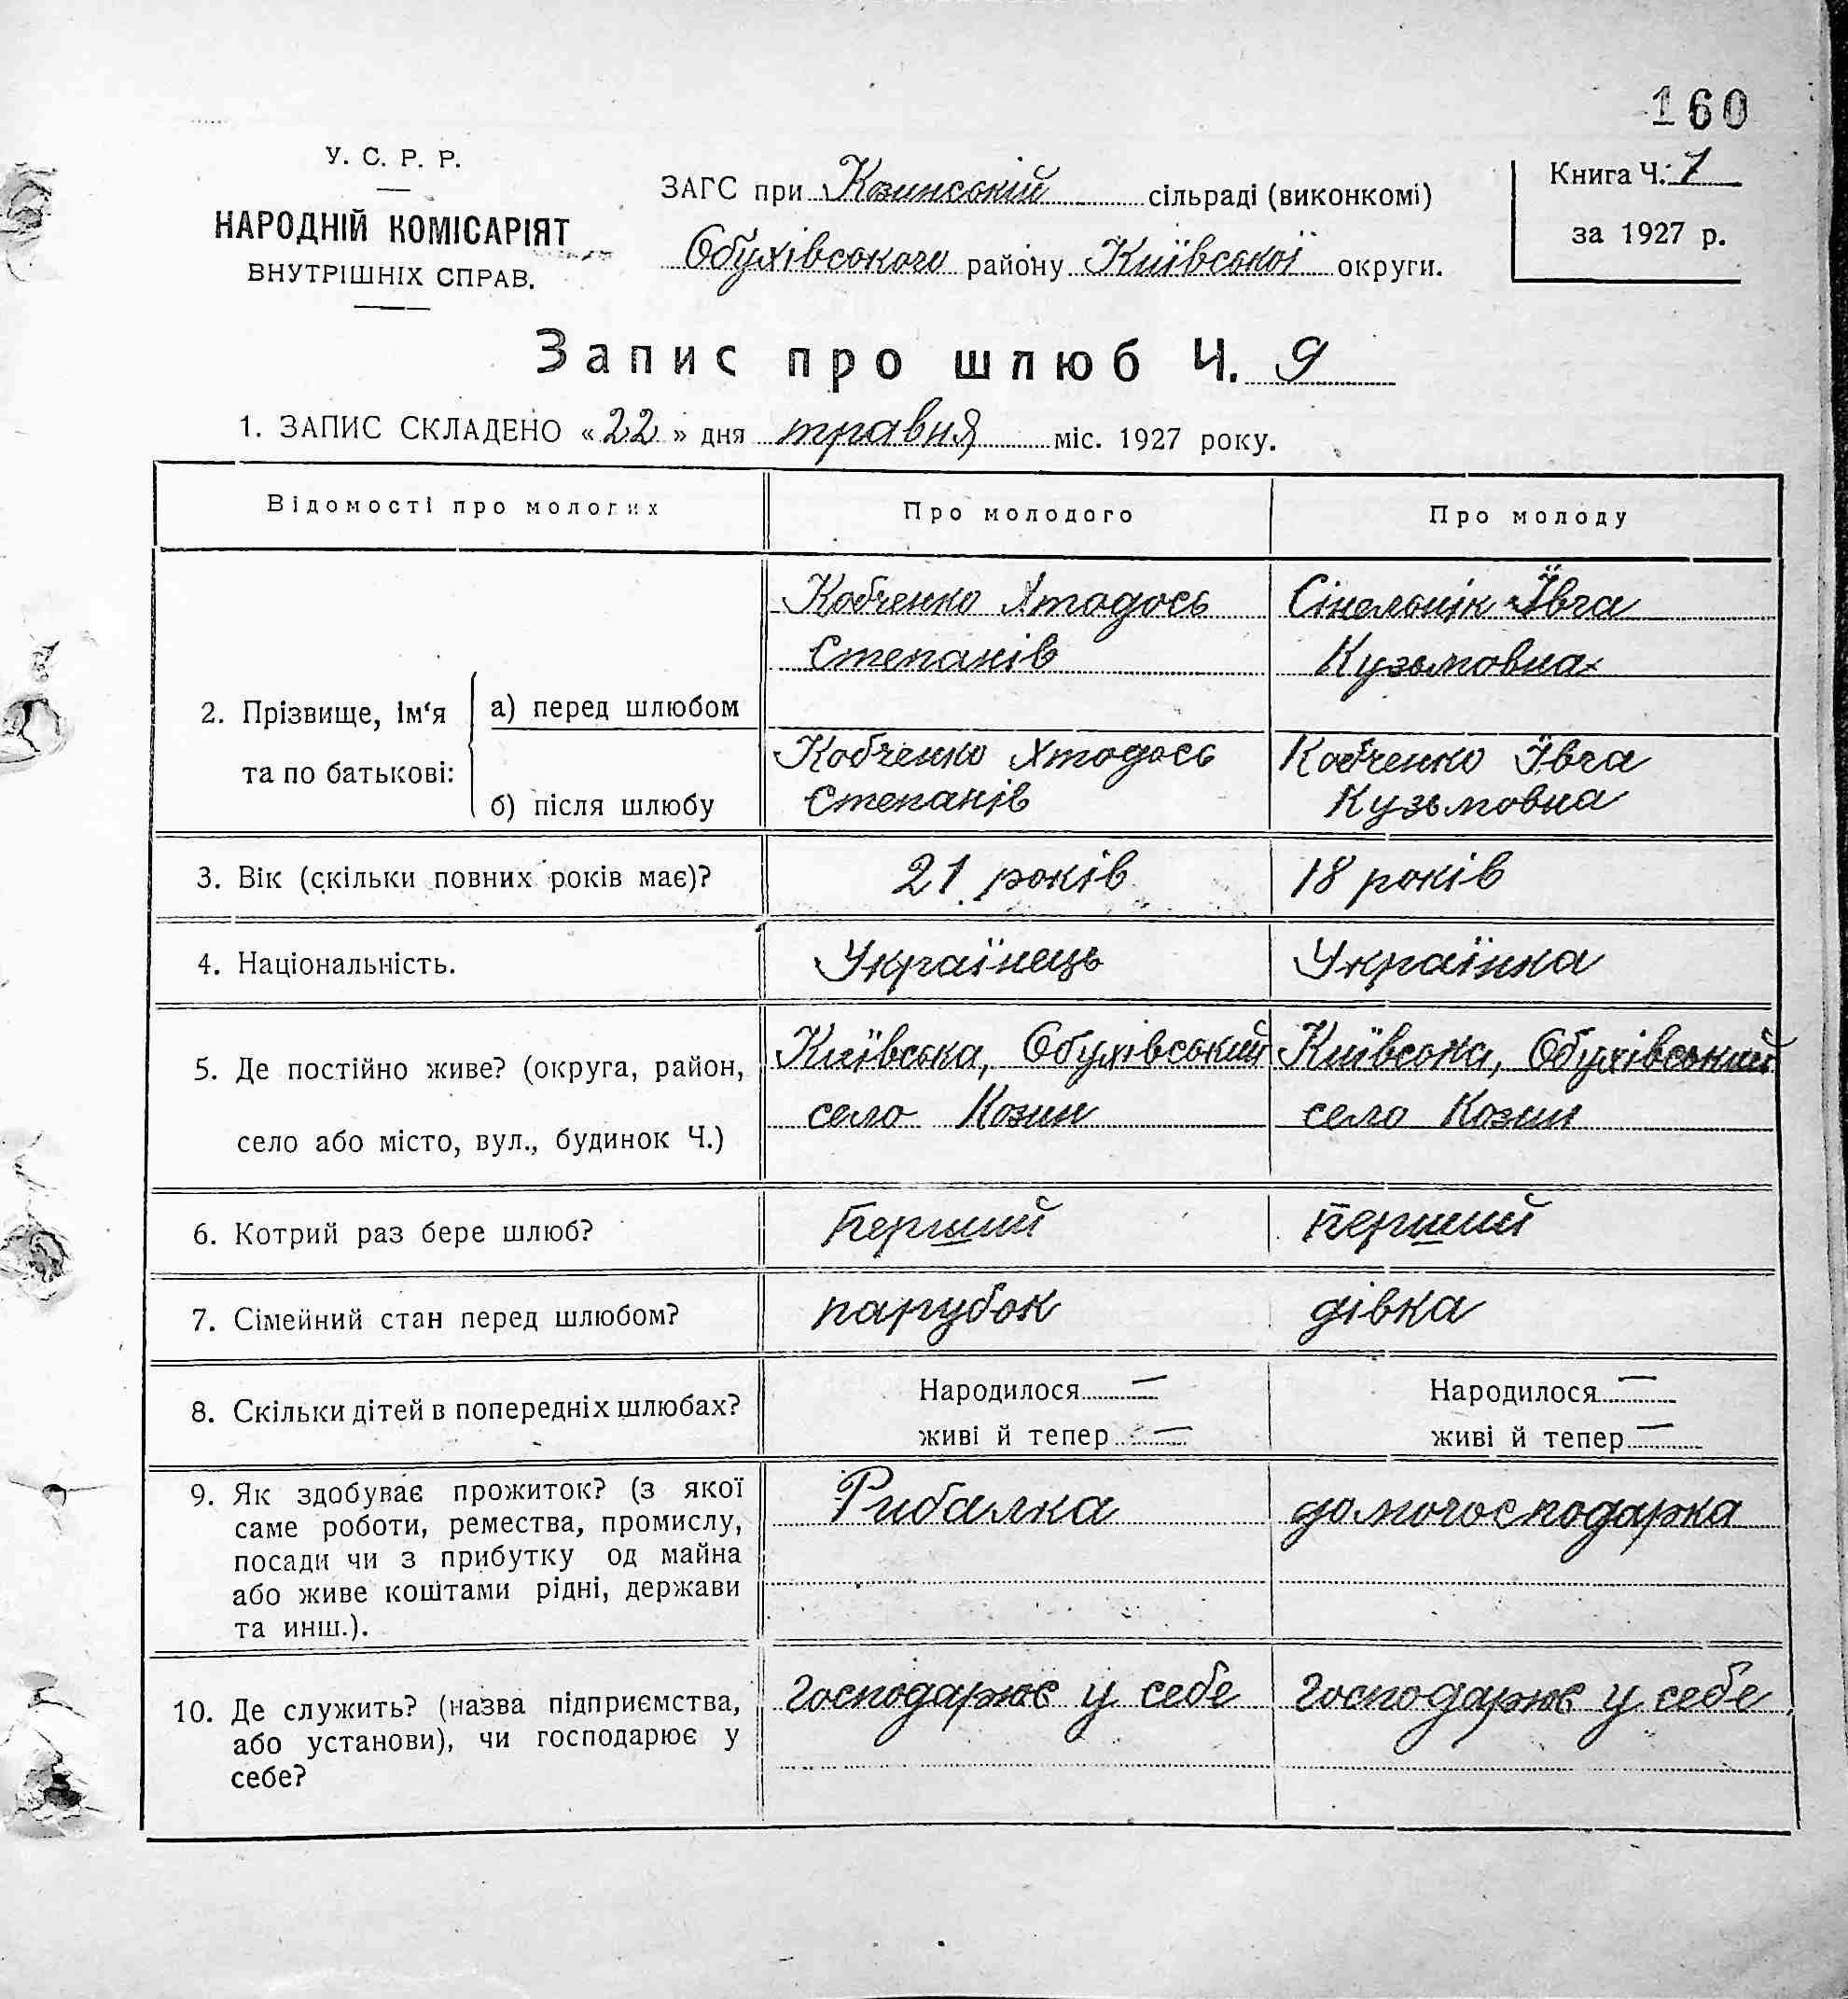 160
У. С. Р. Р.
НАРОДНІЙ КОМІСАРІЯТ
ВНУТРІШНІХ СПРАВ.
ЗАГС при Козинській сільраді (виконкомі)
Обухівського району Київської округи.
Книга Ч. 1
за 1927 р.
Запис про шлюб Ч. 9
1. ЗАПИС СКЛАДЕНО «22» дня травня міс. 1927 року.
Відомості про молодих
Про молодого
Про молоду
2. Прізвище, ім‘я
та по батькові:
а) перед шлюбом
Кобченко Хтодось
Степанів
Сінельнік Ївга
Кузьмовна
б) після шлюбу
Кобченко Хтодось
Степанів
Кобченко Ївга
Кузьмовна
3. Вік (скільки повних років має)?
21 років
18 років
4. Національність.
Українець
Українка
5. Де постійно живе? (округа, район,
село або місто, вул., будинок Ч.)
Київська, Обухівський
село Козин
Київська, Обухівський
село Козин
6. Котрий раз бере шлюб?
Перший
Перший
7. Сімейний стан перед шлюбом?
парубок
дівка
8. Скільки дітей в попередніх шлюбах?
Народилося —
живі й тепер —
Народилося —
живі й тепер —
9. Як здобуває прожиток? (з якої
саме роботи, ремества, промислу,
посади чи з прибутку од майна
або живе коштами рідні, держави
та инш.).
Рибалка
домогосподарка
10. Де служить? (назва підприємства,
або установи), чи господарює у
себе?
господарює у себе
господарює у себе